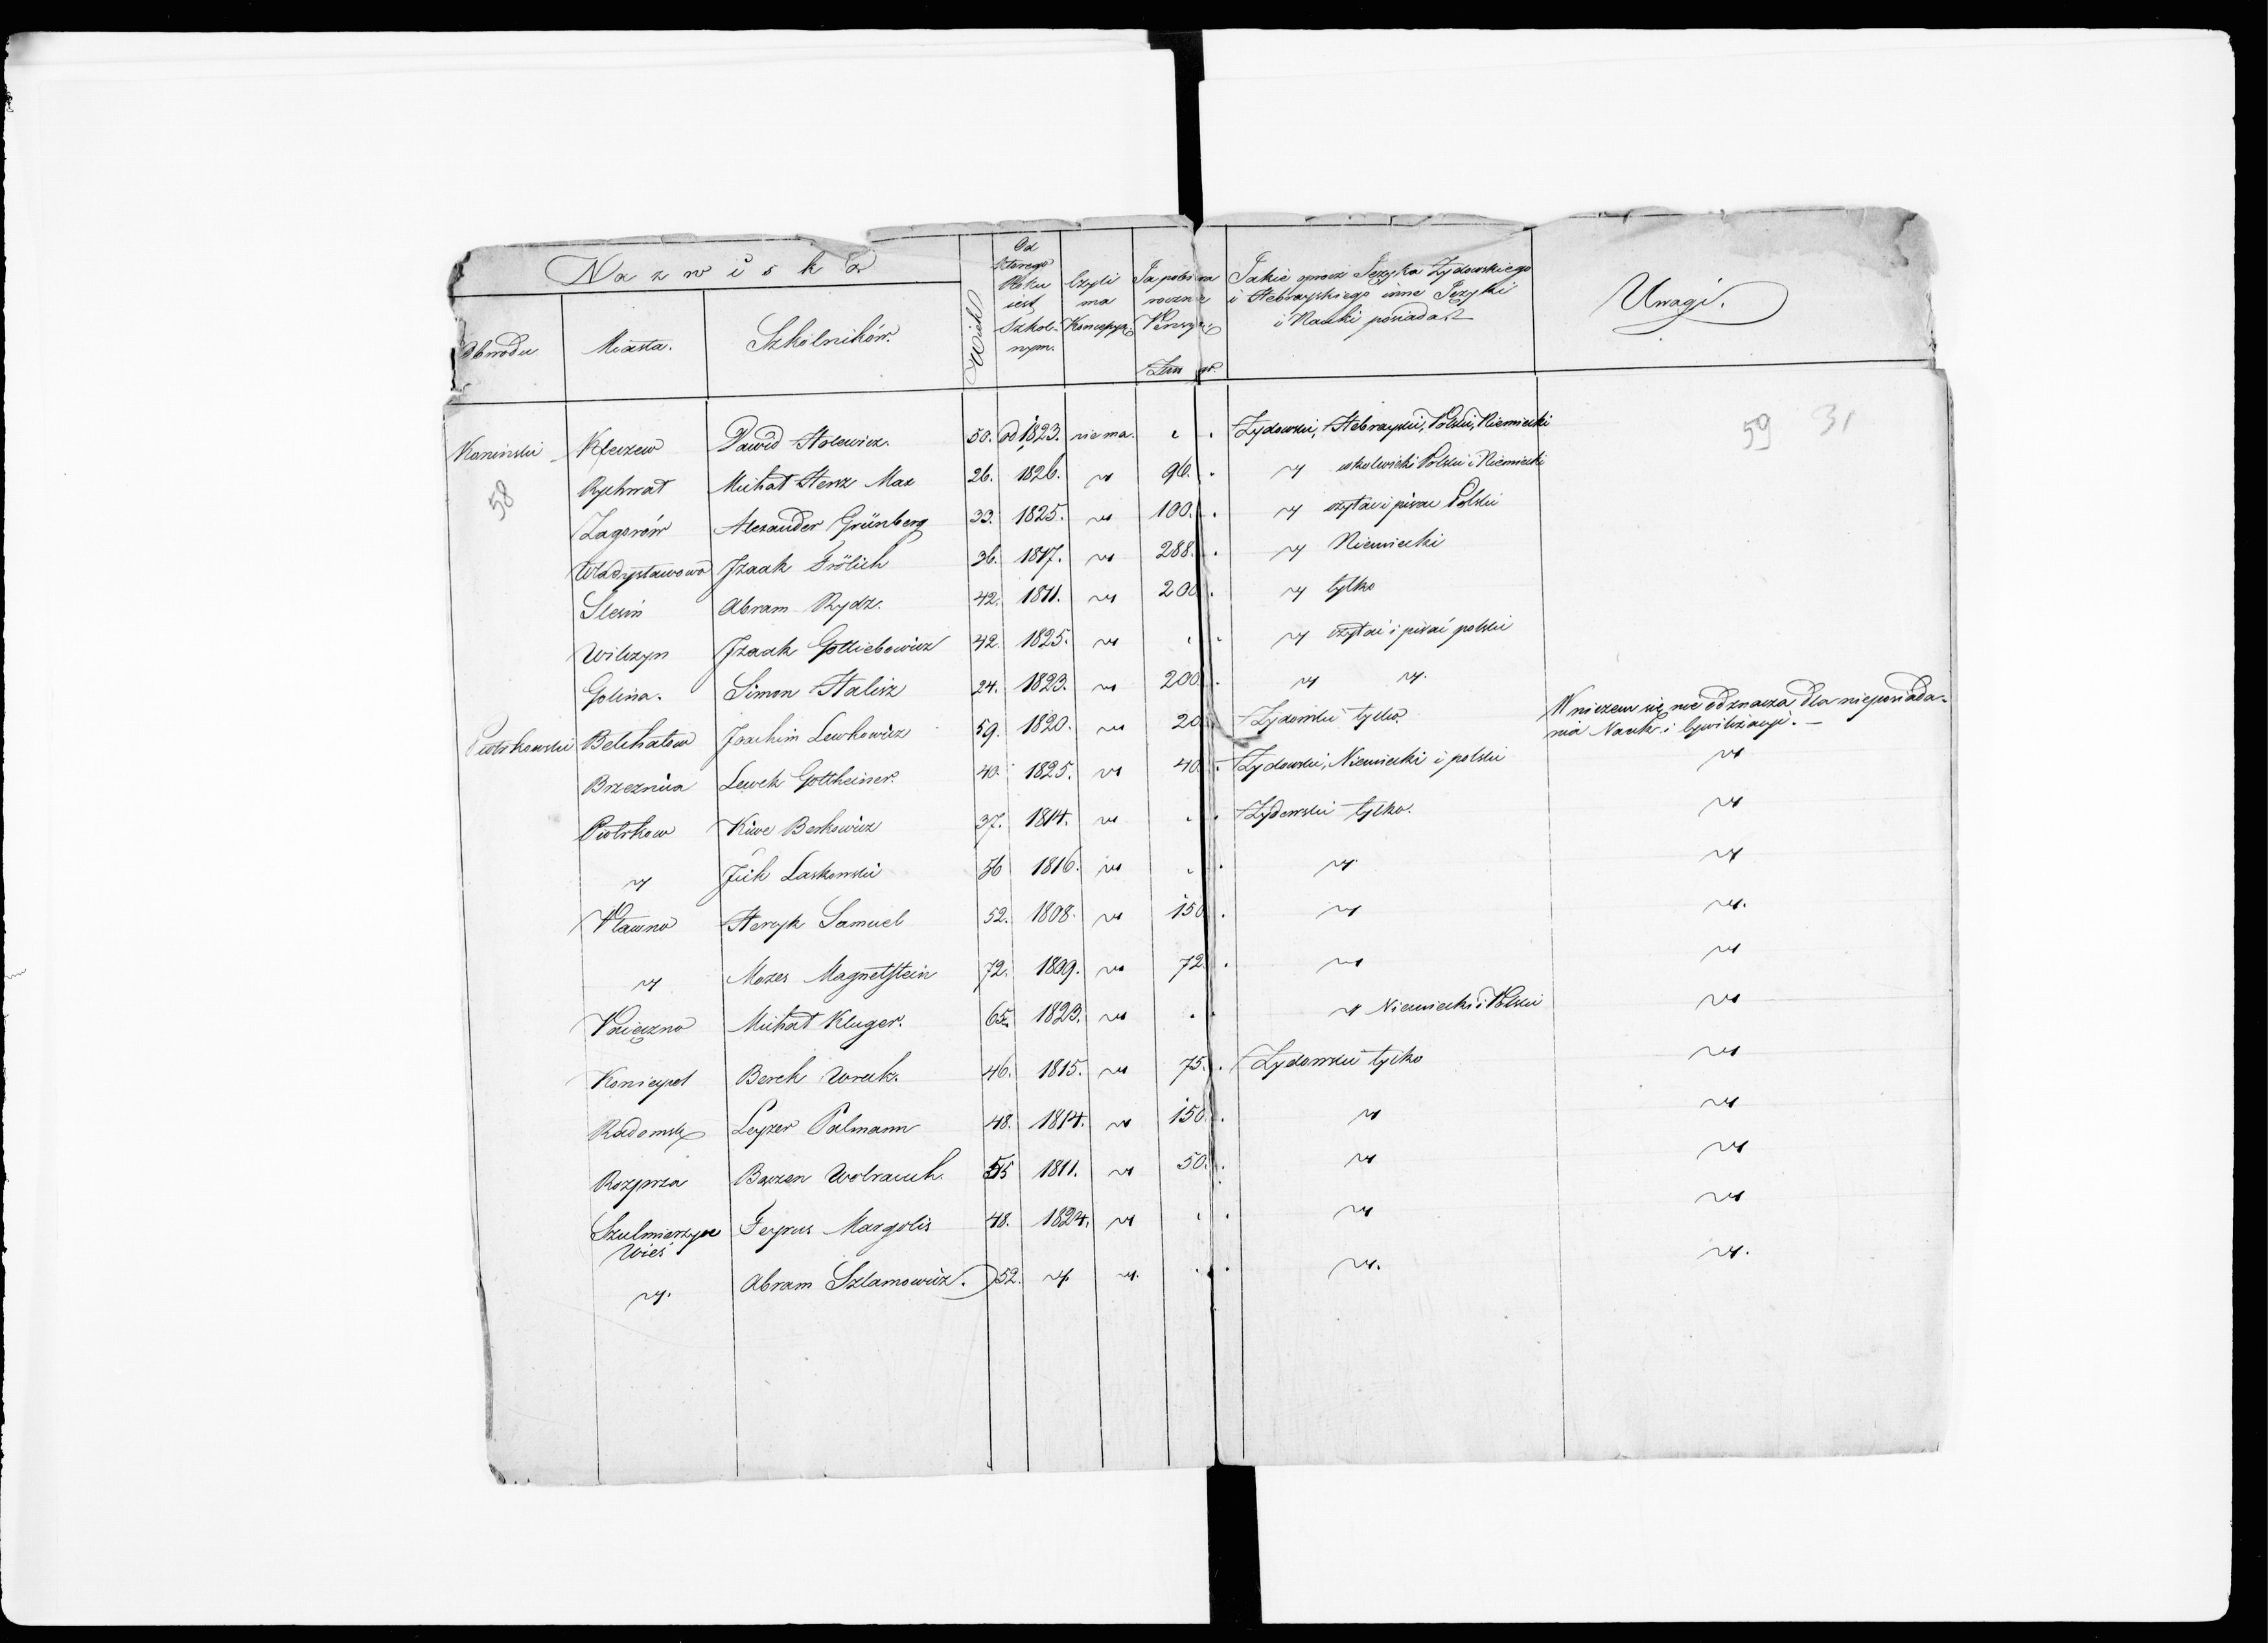 Nazwiska
Obwodu | Miasta. | Szkolników. | Wiek | Od którego Roku jest Szkolnym. | Czyli ma Koncessyą. | Ja pobiera roczną Pensyą. Złote gr. | Jakie oprocz Języka Żydowskiego i Hebrayskiego inne Języki i Nauki posiada. | Uwagi.
59 31
Koniński | Kleczew | Dawid Holewicz. | 50. | od 1823. | niema. | " | . | Żydowski, Hebrayski, Polski, Niemiecki
58
Rychwał | Michał Herz Max | 26. | 1826. | " | 96. | . | " cokolwiek Polski i Niemiecki
Zagorów | Alexander Grünberg | 33. | 1825. | " | 100. | . | " czytać i pisać Polski
Władysławowo | Izaak Frölich | 36. | 1817. | " | 288. | . | " Niemiecki
Slesin | Abram Rydz. | 42. | 1811. | " | 200 | . | " tylko
Wilczyn | Izaak Gottliebowicz | 42. | 1825. | " | " | . | " czytać i pisać polski
Golina. | Simon Halisz | 24. | 1823. | " | 200. | . | " "
Piotrkowski | Belchatow | Joachim Lewkowicz | 59. | 1820. | " | 20 | . | Żydowski tylko. | W niczem się nie odznacza dla nieposiadania Nauk i Cywilizacyi. —
Brzeznica | Lewek Gottheiner. | 40. | 1825. | " | 40. | . | Żydowski, Niemiecki i polski | "
Piotrkow | Kiwe Berkowicz | 37. | 1814. | " | " | . | Żydowski tylko. | "
" | Laskowski | 56 | 1816. | " | " | . | " | "
Pławno | Hersyk Samuel | 52. | 1808. | " | 150 | . | " | "
" | Mozes Magnetstein | 72. | 1809. | " | 72. | . | " | "
Michał Kluger. | 65. | 1823. | " | . | . | " Niemiecki i Polski | "
Koniecpol | Berek | 46. | 1815. | " | 75. | . | Żydowski tylko | "
Radomsk | Leyzer Palmann | 48. | 1814. | " | 150. | . | " | "
Rozprza | 1811. | " | 50. | . | " | "
Szulmierzyce Wieś | Margolis | 48. | 1824. | " | " | . | " | "
" | Abram Szlamowicz. | 52. | " | " | . | . | " | "